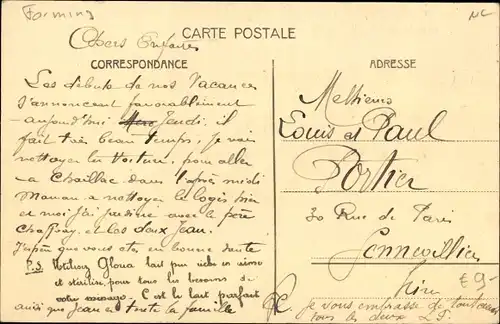 Farming
NC
CARTE POSTALE
Chers Enfants
CORRESPONDANCE
ADRESSE
Les débuts de nos Vacances
s'annoncent favorablement
aujourd'hui Jeudi. il
fait très beau temps, je vais
nettoyer la Voiture, pour aller
a Chaillac dans l'après midi
Maman a nettoyer le loges hier
et moi j'ai jardiné avec le père
Chaffray, et les deux Jean.
J'espère que vous êtes en bonne santé
P.S. Utilisez Gloria lait pur riche en crème
et stérilisé, pour tous les besoins de
votre ménage. C'est le lait parfait
ainsi que Jean et toute la famille
Messieurs
Louis et Paul
Portier
30 Rue de Paris
Gennevilliers
Seine
€9-
Je vous embrasse de tout cœur
tous les deux L.P.